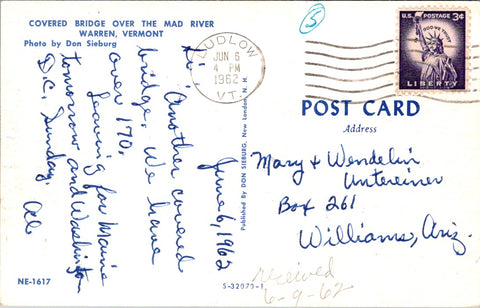 COVERED BRIDGE OVER THE MAD RIVER
WARREN, VERMONT
Photo by Don Sieburg
June 6, 1962
Hi, Another covered
bridge. We have
over 170.
Leaving for Maine
tomorrow and Washington
D.C. Sunday.
Al
NE-1617
Published by DON SIEBURG, New London, N. H.
S-32079-1
5
LUDLOW
JUN 6
4 PM
1962
VT.
U.S. POSTAGE 3¢
IN GOD WE TRUST
LIBERTY
POST CARD
Address
Mary & Wendelin
Untereiner
Box 261
Williams, Ariz.
received
6-9-62